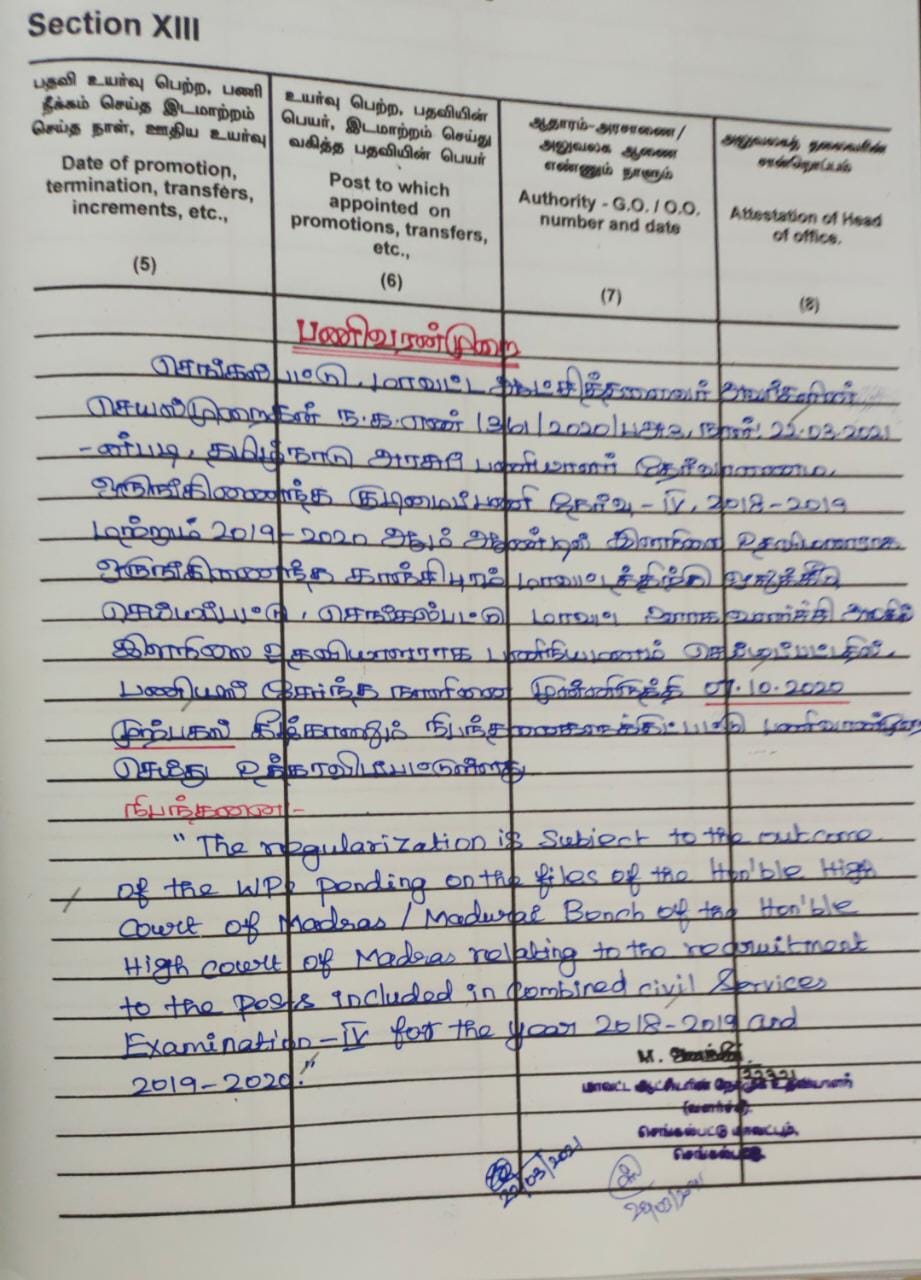 Section XIII
பதவி உயர்வு பெற்ற, பணி
நீக்கம் செய்த இடமாற்றம்
செய்த நாள், ஊதிய உயர்வு
Date of promotion,
termination, transfers,
increments, etc.,
(5)
உயர்வு பெற்ற, பதவியின்
பெயர், இடமாற்றம் செய்து
வகித்த பதவியின் பெயர்
Post to which
appointed on
promotions, transfers,
etc.,
(6)
ஆதாரம்-அரசாணை /
அலுவலக ஆணை
எண்ணும் நாளும்
Authority - G.O. / O.O.
number and date
(7)
அலுவலகத் தலைவரின்
சான்றொப்பம்
Attestation of Head
of office.
(8)
பணிவரன்முறை
செங்கல்பட்டு, மாவட்ட ஆட்சித்தலைவர் அவர்களின்
செயல்முறைகள் ந.க.எண் /2020/ நாள்: 22.03.2021
-ன்படி, தமிழ்நாடு அரசுப் பணியாளர் தேர்வாணைய
ஒருங்கிணைந்த குடிமைப்பணி தேர்வு - IV, 2018-2019
மற்றும் 2019-2020 ஆம் ஆண்டில் இளநிலை உதவியாளராக
ஒருங்கிணைந்த காஞ்சிபுரம் மாவட்டத்திற்கு ஒதுக்கீடு
செய்யப்பட்டு, செங்கல்பட்டு மாவட்ட ஊரக வளர்ச்சி அலகில்
இளநிலை உதவியாளராக பணிநியமனம் செய்யப்பட்டதில்,
பணியில் சேர்ந்த நாளினை முன்னிருத்தி 07.10.2020
முற்பகல் கீழ்காணும் நிபந்தனைகளுக்குட்பட்டு பணிவரன்முறை
செய்து உத்தரவிடப்பட்டுள்ளது
நிபந்தனை:-
" The regularization is Subject to the outcome
of the WPs pending on the files of the Hon'ble High
Court of Madras / Madurai Bench of the Hon'ble
High court of Madras relating to the recruitment
to the posts included in Combined civil Services
Examination - IV for the year 2018-2019 and
2019-2020."
மாவட்ட ஆட்சியரின் நேர்முக உதவியாளர்
(வளர்ச்சி)
செங்கல்பட்டு மாவட்டம்,
செங்கல்பட்டு.
22/03/2021